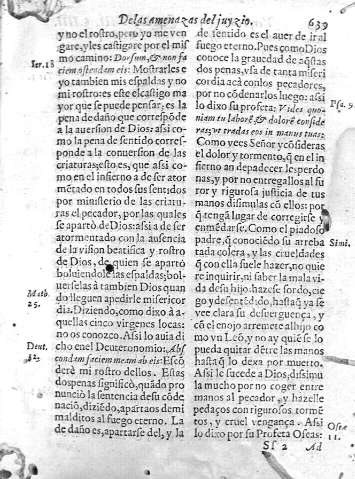 De las amenazas del juyzio. 639
y no el rostro, pero yo me ven
gare, y les castigare por el mis
mo camino: Dorsum, & non fa
ciem ostendam eis: Mostrarles e
yo tambien mis espaldas y no
mi rostro: este es el castigo ma
yor que se puede pensar: es la
pena de daño que correspõde
a la auersion de Dios: assi co-
mo la pena de sentido corres-
ponde a la conuersion de las
criaturas; esto es, que assi co-
mo en el infierno a de ser ator
mẽtado en todos sus sentidos
por ministerio de las criatu-
ras el pecador, por las quales
se apartò de Dios: assi a de ser
atormentado con la ausencia
de la vision beatifica y rostro
de Dios, de quien se apartò
boluiendole las espaldas; bol-
uerselas à tambien Dios quan
do llegue a apedirle misericor
dia. Diziendo, como dixo à a-
quellas cinco virgenes locas:
no os conozco. Assi lo auia di
cho en el Deuteronomio: Abs
condam faciem meam ab eis: Escõ
derè mi rostro dellos. Estas
dos penas significò, quãdo pro
nunciò la sentencia de su cõde
naciõ, diziẽdo, apartaos de mi
malditos al fuego eterno. La
de daño es, apartarse del, y la
Ier. 18
Math.
25.
Deut.
32.
de sentido es el auer de ir al
fuego eterno. Pues como Dios
conoce la grauedad de aq̃stas
dos penas, vsa de tanta miseri
cordia acà conlos pecadores,
por no cõdenarlos luego: assi
lo dixo su profeta: Vides quo-
niam tu laborẽ & dolorẽ conside
ras; vt tradas eos in manus tuas:
Como veys Señor y cõsideras
el dolor y tormento, q̃ en el in
fierno an depadecer les perdo
nas, y por no entregallos al fu
ror y rigurosa justicia de tus
manos disimulas cõ ellos: por
q̃ tẽgã lugar de corregirse y
emẽdarse. Como el piadoso
padre, q̃ conociẽdo su arreba
tada colera, y las crueldades
q̃ con ella suele hazer, no quie
re inquirir, ni saber la mala vi-
da de su hijo: hazese sordo, cie
go y desentẽdido, hasta q̃ ya se
vee clara su desuerguença, y
cõ el enojo arremete al hijo co
mo vn Leõ, y no ay quiẽ se lo
pueda quitar dẽtre las manos
hasta q̃ lo dexa por muerto.
Assi le sucede a Dios, disimu
la mucho por no coger entre
manos al pecador, y hazelle
pedaços con rigurosos tormẽ
tos, y cruel vengança. Assi
lo dixo por su Profeta Oseas:
Psa. 9.
Simi.
Oseæ
11.
Sſ 2 Ad